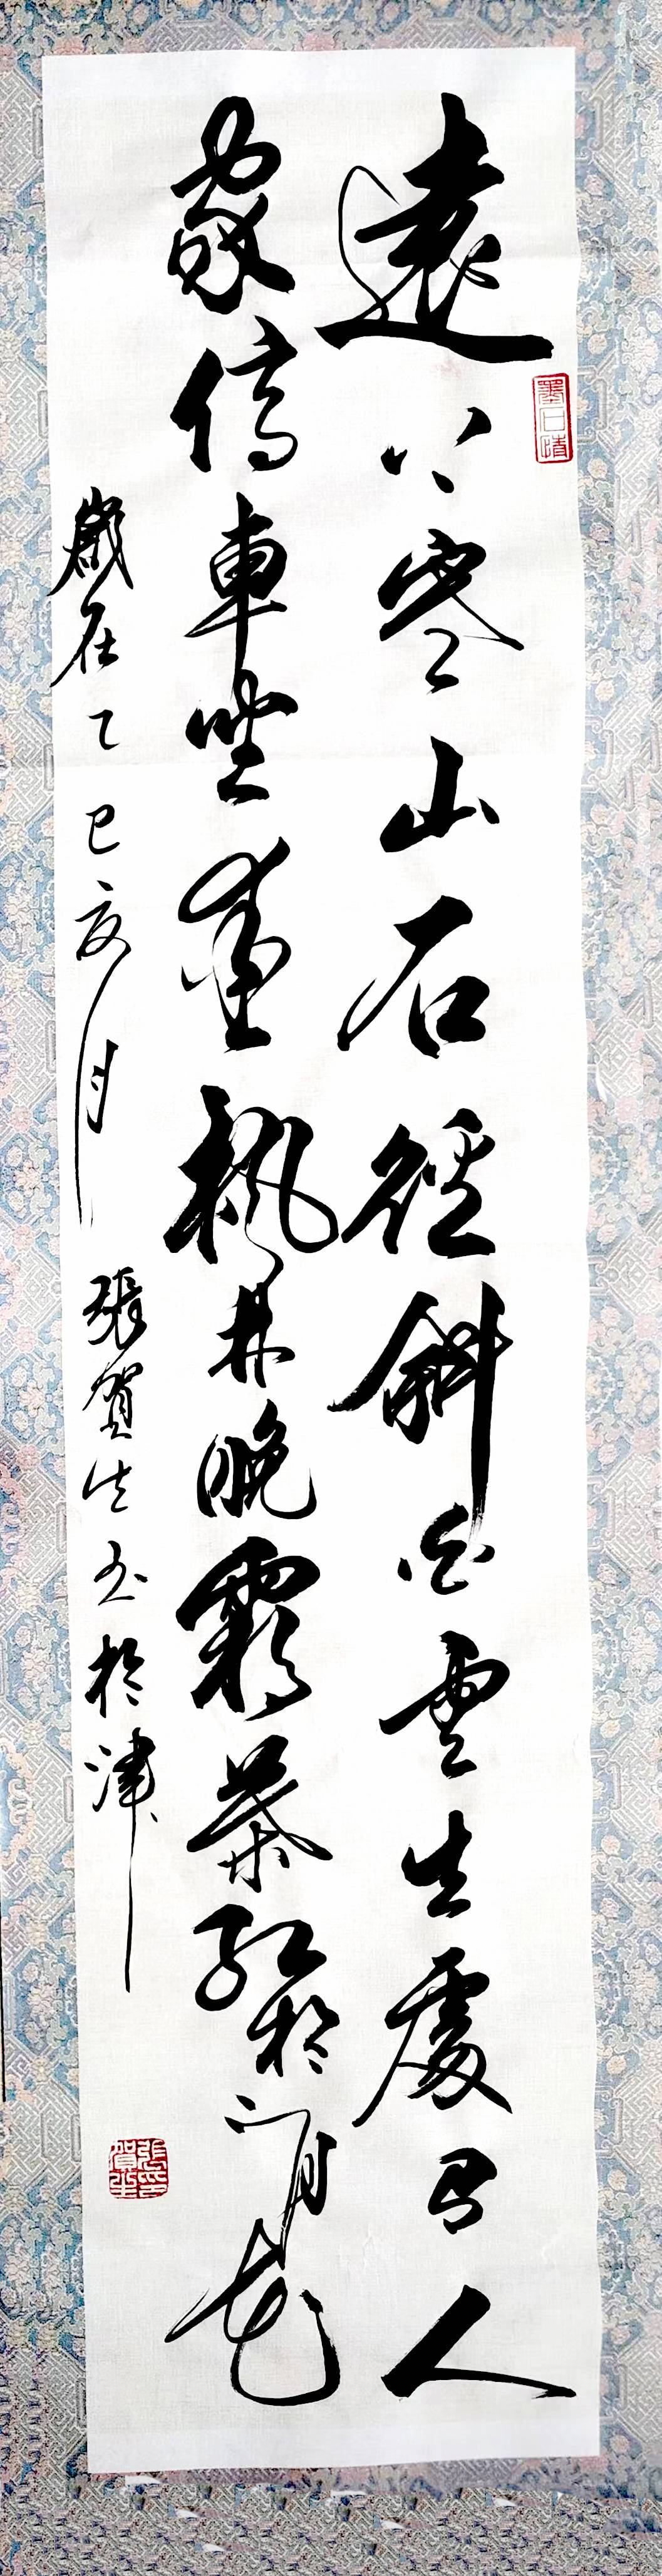 遠上寒山石徑斜白雲生處有人
家停車坐愛楓林晚霜葉紅於二月花
歲在乙巳亥月 張賀生书於津
張印賀生